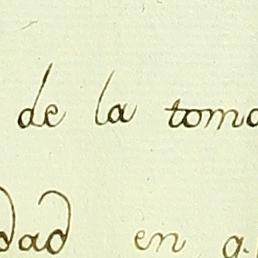 de la toma
dad en g.